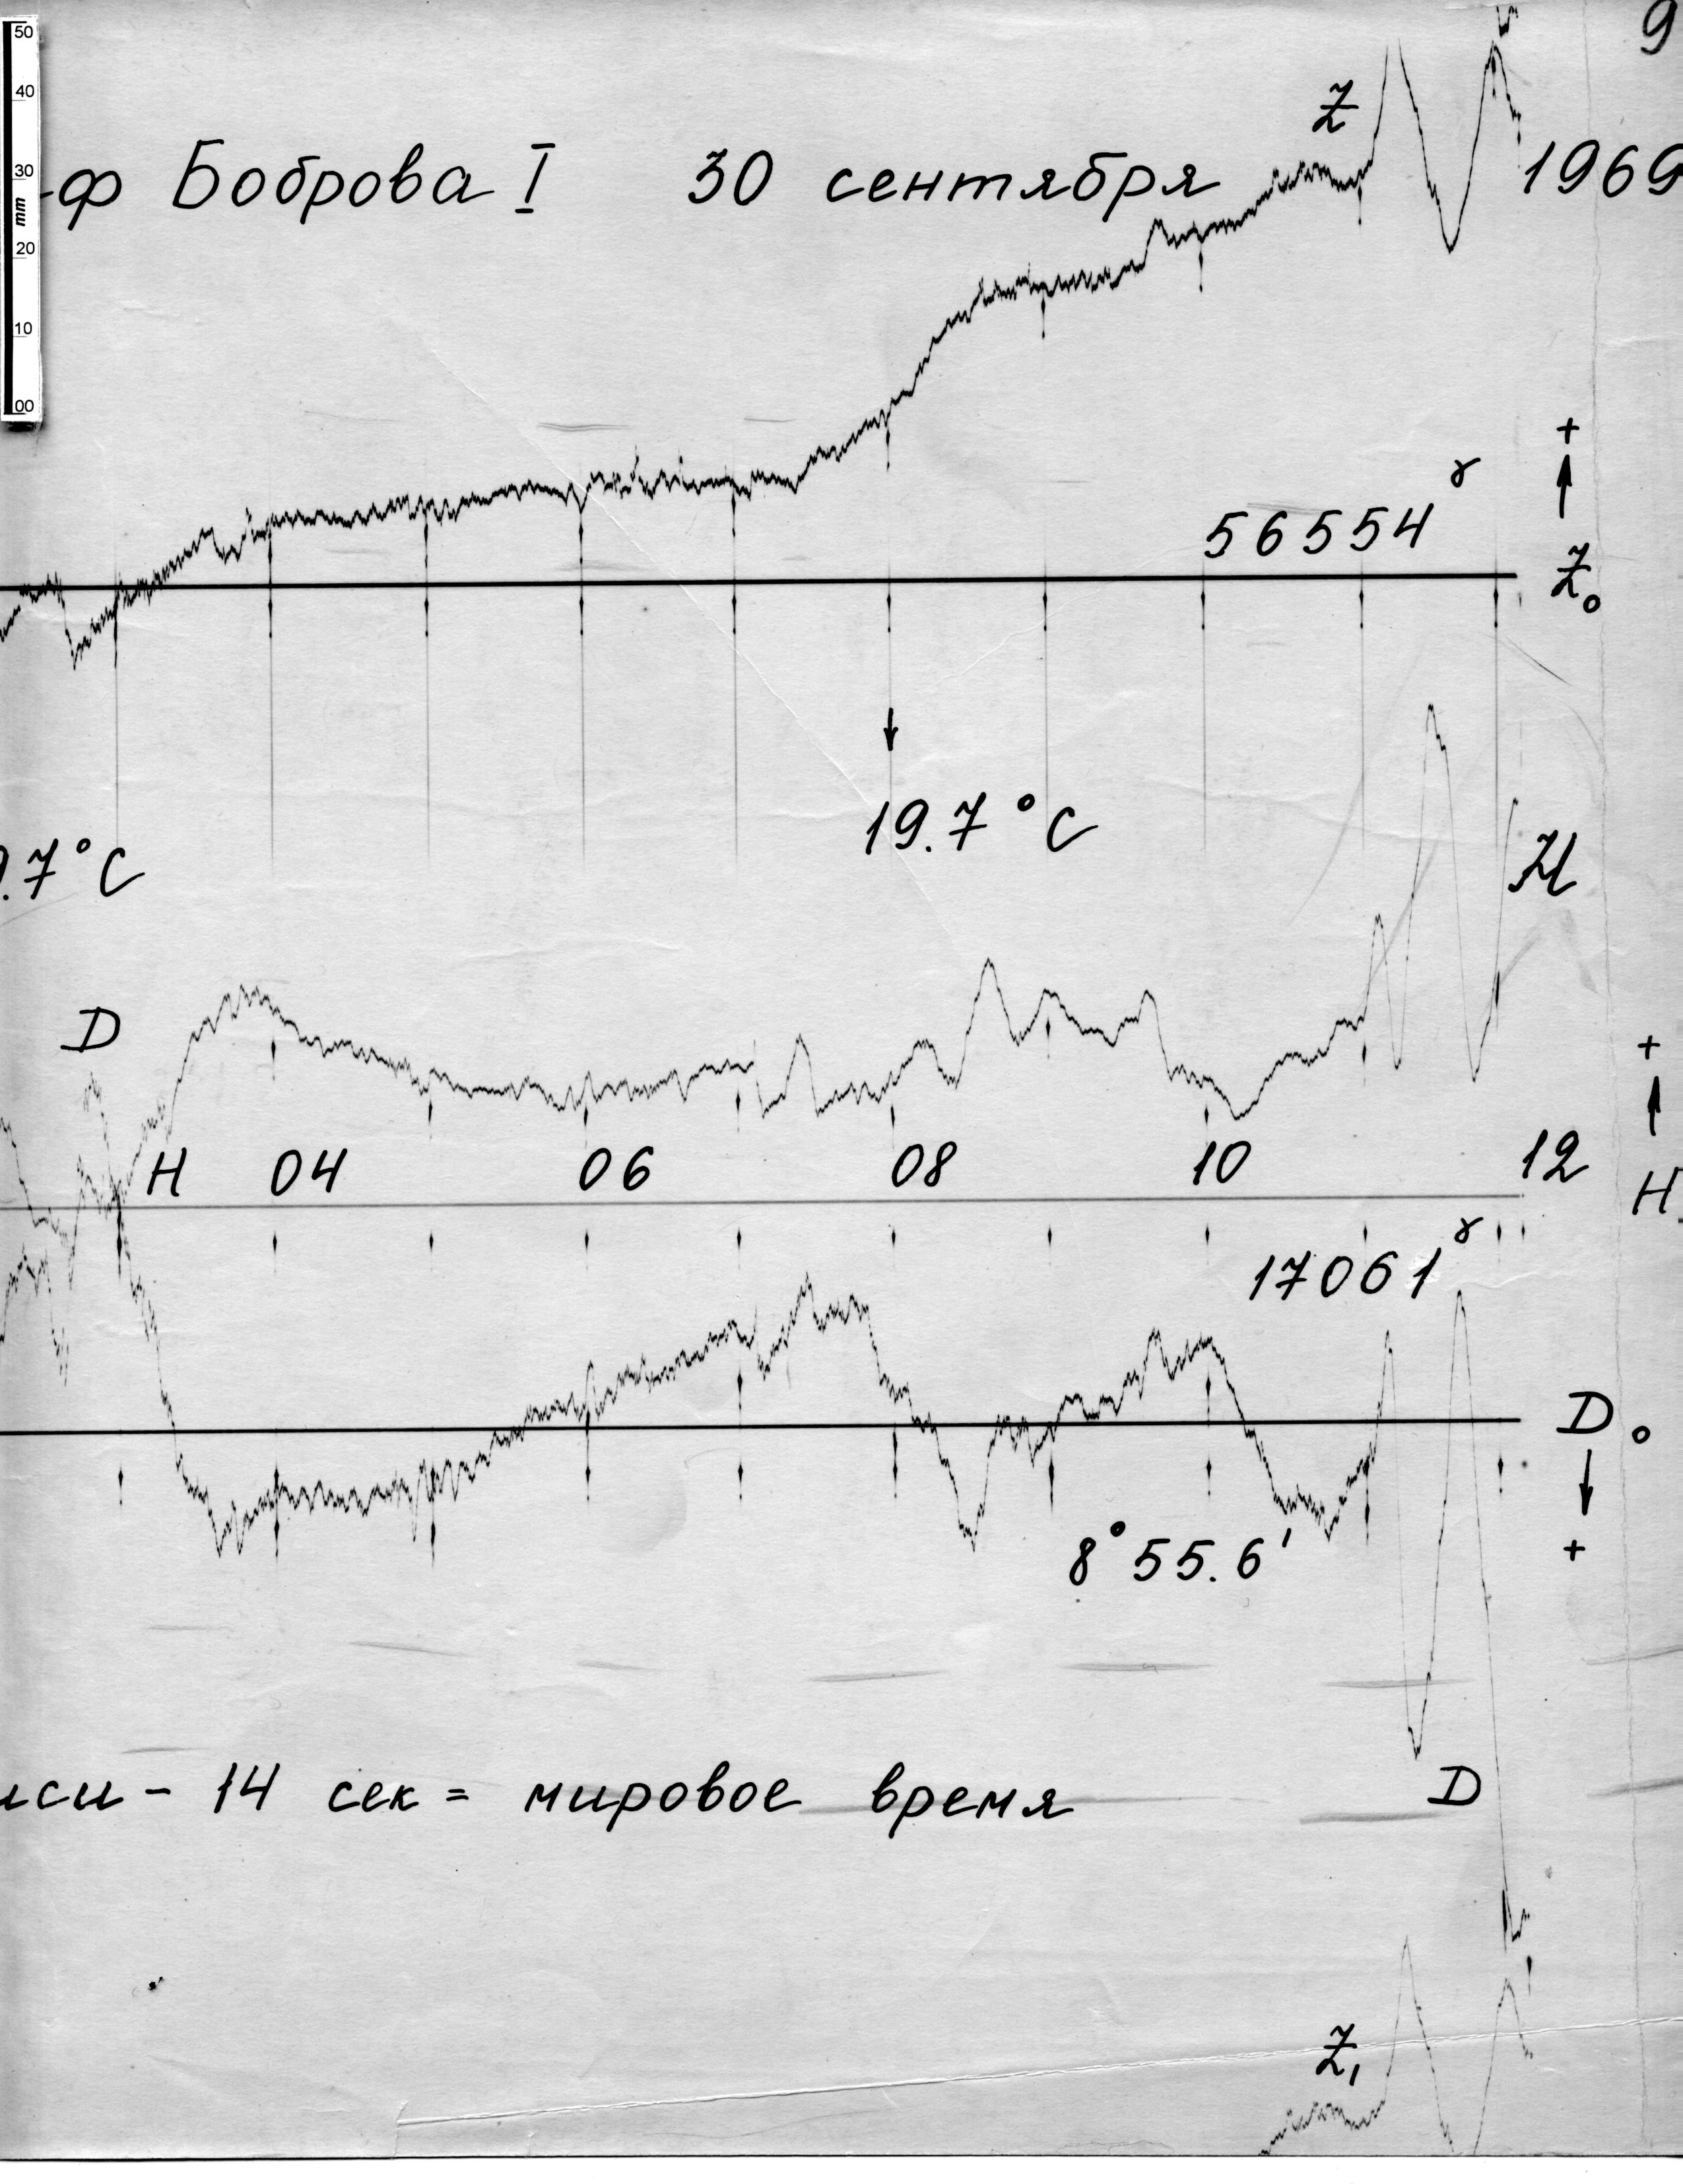 50
40
30
mm
20
10
00
9
Z
-ф Боброва I 30 сентября 1969
+
56554γ
Z₀
19.7°C
.7°C
H
D
+
H 04 06 08 10 12
H
17061γ
D₀
8°55.6'
+
иси - 14 сек = мировое время
D
Z₁